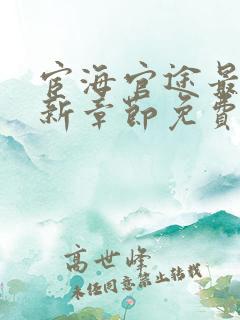 宦海官途最
新章節免費
高世峰
未经同意禁止转载